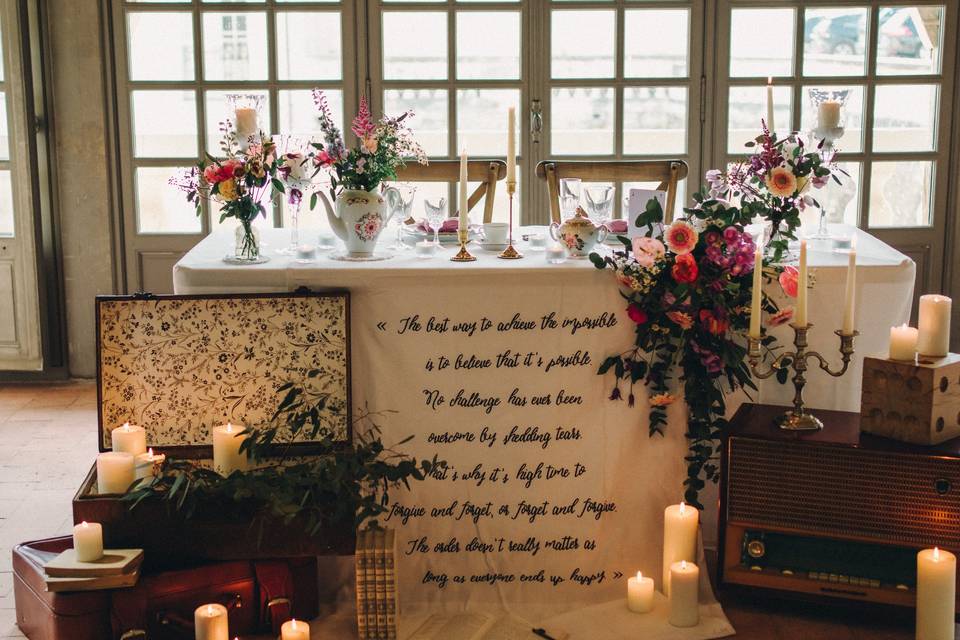 « The best way to achieve the impossible
is to believe that it's possible.
No challenge has ever been
overcome by shedding tears.
That's why it's high time to
forgive and forget, or forget and forgive.
The order doesn't really matter as
long as everyone ends up happy. »